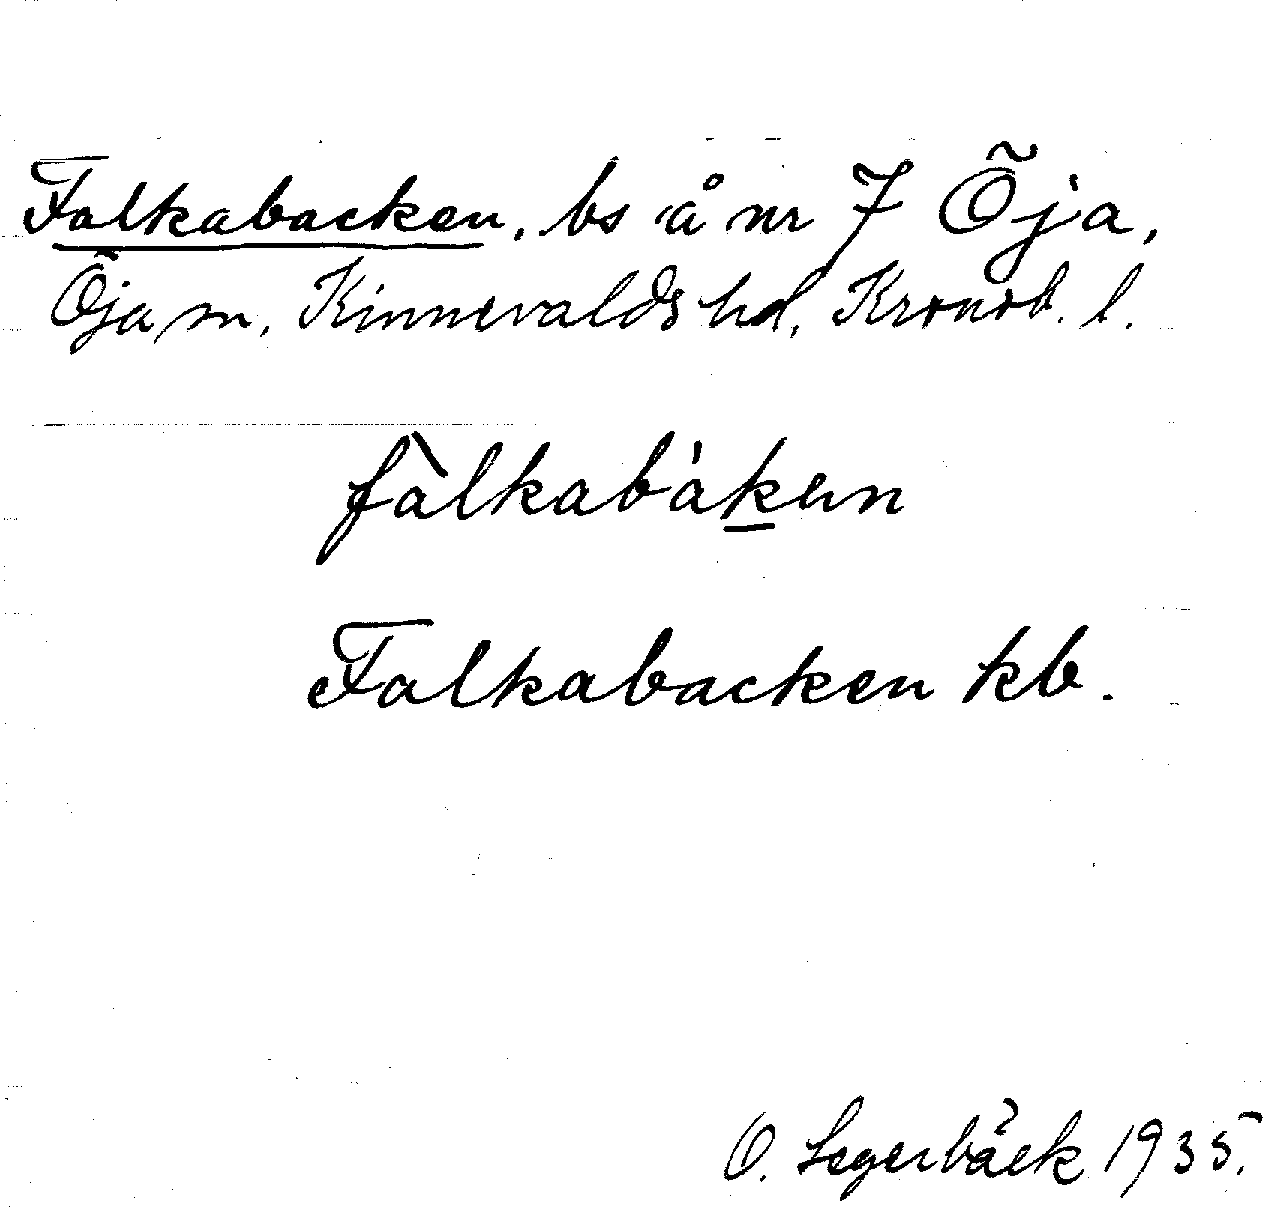 Falkabacken, bs å nr 7 Öja,
Öja sn, Kinnevalds hd, Kronob. l.
fàlkabàken
Falkabacken kb.
O. Segerbäck 1935.